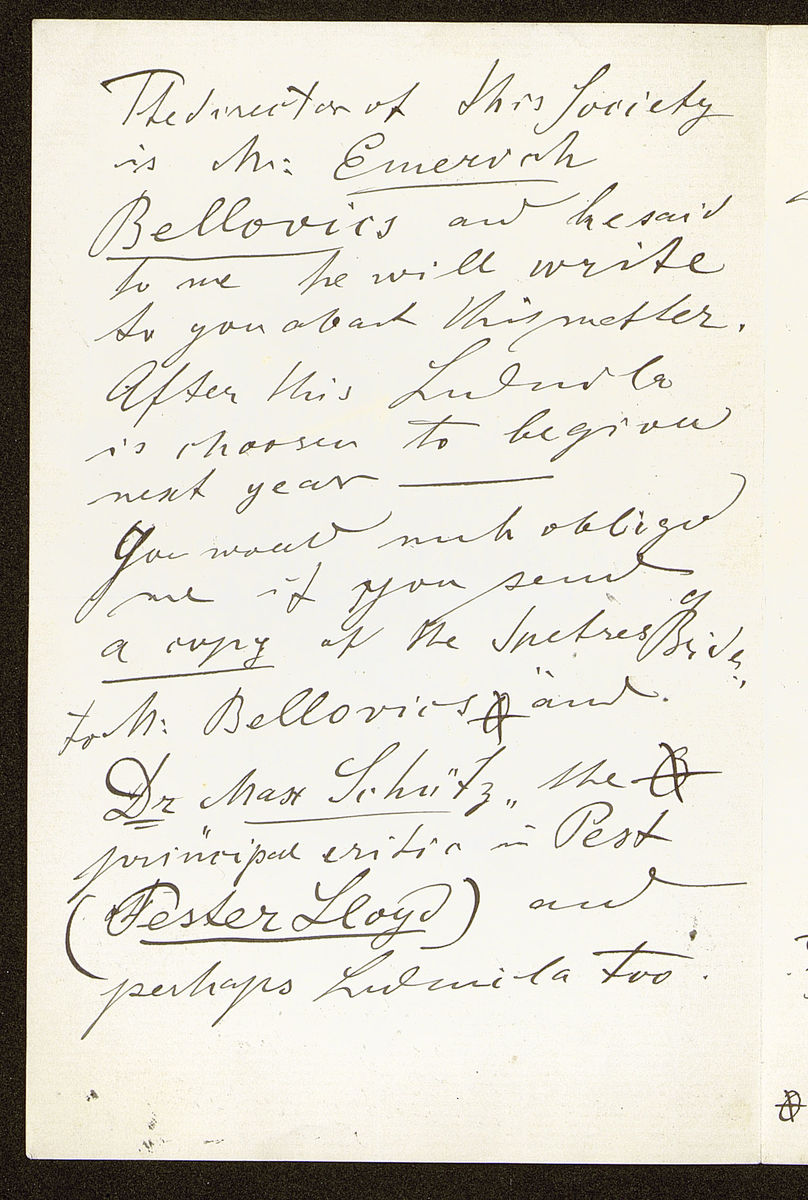 The director of this Society
is Mr: Emerich
Bellovics and he said
to me he will write
to you about this matter.
After this Ludmila
is choosen to be given
next year —
You would much oblige
me if you send
a copy of the Spetres Bride
to Mr: Bellovics and
Dr Max Schütz, the
principal critic in Pest
(Pester Lloyd) and
perhaps Ludmila too.